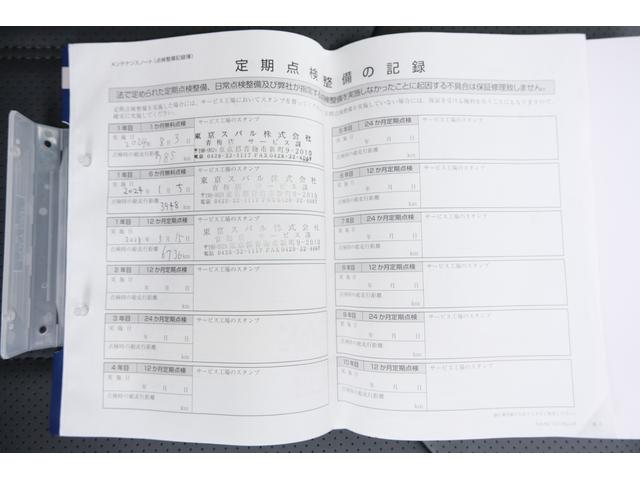 メンテナンスノート(点検整備記録簿)
定期点検整備の記録
法で定められた定期点検整備、日常点検整備及び弊社が指定する点検整備を実施しなかったことに起因する不具合は保証修理致しません。
1年目 1か月無料点検
サービス工場のスタンプ
実施日
8月3日
点検時の総走行距離
985 km
東京スバル株式会社
青梅店 サービス課
〒198-0024 東京都青梅市新町9-2010
電話 0428-32-1117 FAX0428-32-4267
1年目 6か月無料点検
サービス工場のスタンプ
実施日
2024年1月5日
点検時の総走行距離
3948 km
東京スバル株式会社
青梅店 サービス課
〒198-0024 東京都青梅市新町9-2010
電話 0428-32-1117 FAX0428-32-4267
1年目 12か月定期点検
サービス工場のスタンプ
実施日
月15日
点検時の総走行距離
6736 km
東京スバル株式会社
青梅店 サービス課
〒198-0024 東京都青梅市新町9-2010
電話 0428-32-1117 FAX0428-32-4267
2年目 12か月定期点検
サービス工場のスタンプ
実施日
年 月 日
点検時の総走行距離
km
3年目 24か月定期点検
サービス工場のスタンプ
実施日
年 月 日
点検時の総走行距離
km
4年目 12か月定期点検
サービス工場のスタンプ
実施日
年 月 日
点検時の総走行距離
km
5年目 24か月定期点検
サービス工場のスタンプ
実施日
年 月 日
点検時の総走行距離
km
6年目 12か月定期点検
サービス工場のスタンプ
実施日
年 月 日
点検時の総走行距離
km
7年目 24か月定期点検
サービス工場のスタンプ
実施日
年 月 日
点検時の総走行距離
km
8年目 12か月定期点検
サービス工場のスタンプ
実施日
年 月 日
点検時の総走行距離
km
9年目 12か月定期点検
サービス工場のスタンプ
実施日
年 月 日
点検時の総走行距離
km
10年目 12か月定期点検
サービス工場のスタンプ
実施日
年 月 日
点検時の総走行距離
km